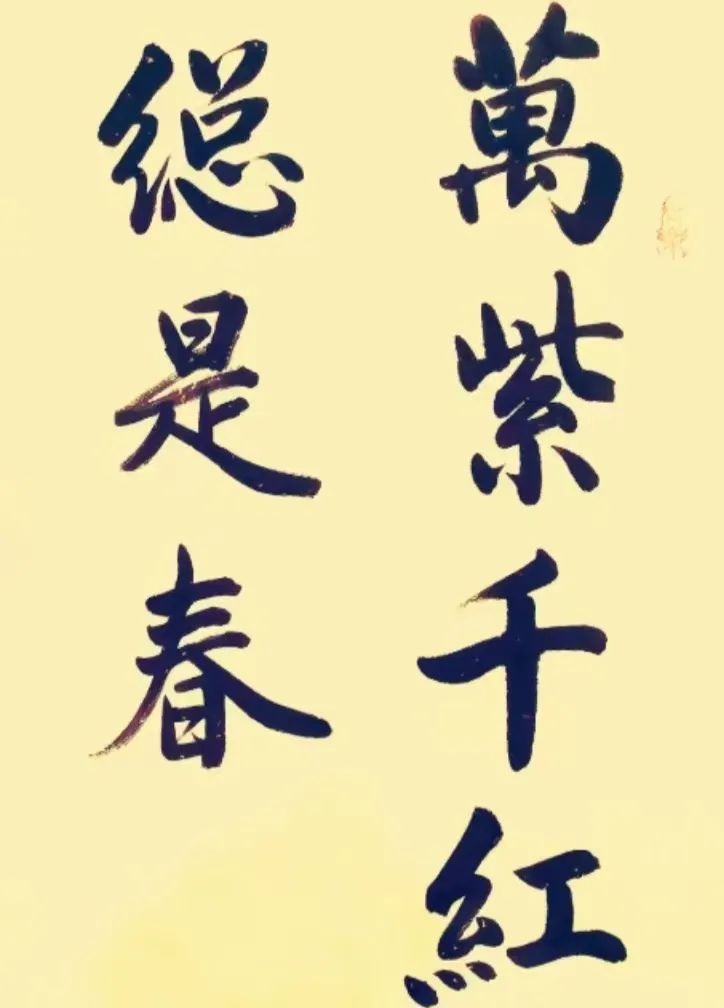 萬紫千紅
縂是春